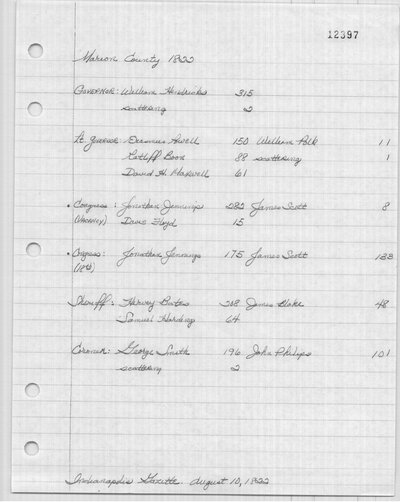 12397
Marion County 1822
Governor: William Hendricks 315
scattering 2
Lt Governor Erasmus Powell 150 William Polk 11
Ratliff Boon 88 scattering 1
David H. Maxwell 61
• Congress: Jonathan Jennings 282 James Scott 8
(Vacancy) Davis Floyd 15
• Congress: Jonathan Jennings 175 James Scott 133
(18th)
Sheriff: Harvey Bates James Blake 48
Samuel Harding 64
Coroner: George Smith 196 John Philips 101
scattering 2
Indianapolis Gazette August 10, 1822